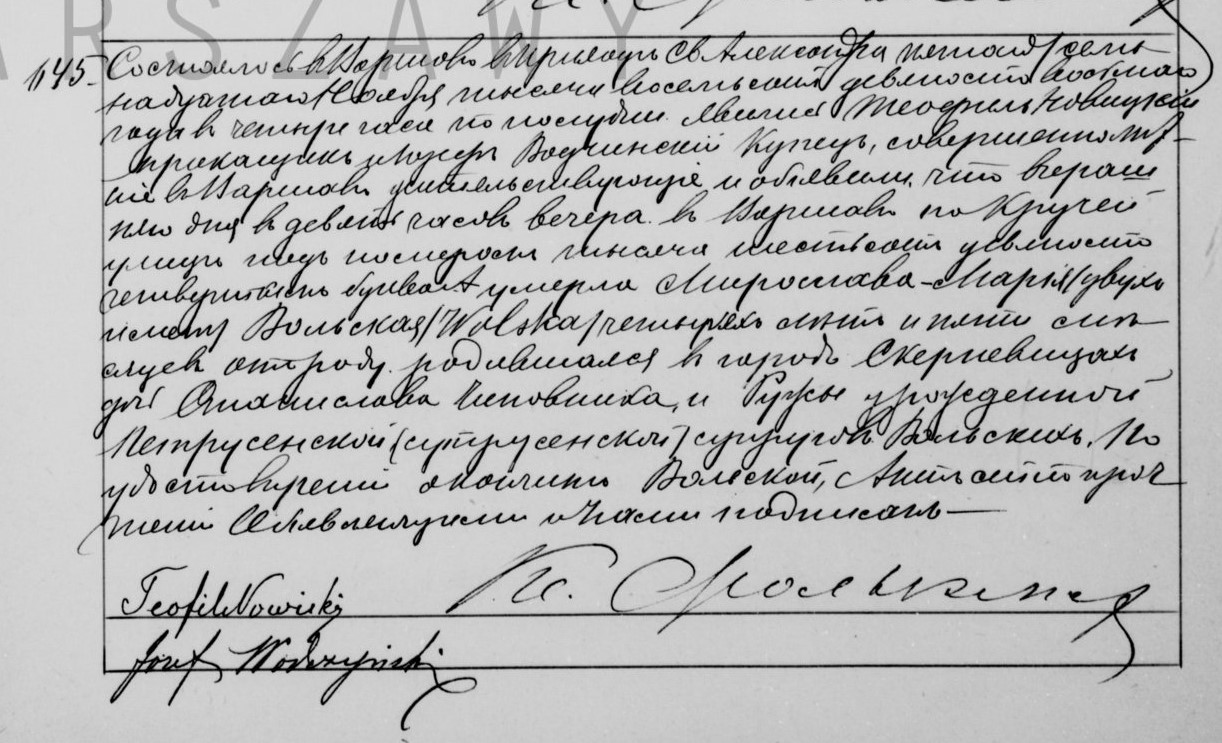 ARSZAWY
1145.
Состоялось въ Варшавѣ въ приходѣ Св Александра пятаго/сем-
надцатаго/Ноября тысяча восемьсотъ девяносто восьмаго
года въ четыре часа по полудни. Явились Теофиль Новицкій
прикащикъ и Іозефъ Водчинскій Купецъ, совершеннолѣт-
ніе въ Варшавѣ жительствующіе и объявили, что вчераш
няго дня въ девять часовъ вечера въ Варшавѣ по Кручей
улицѣ подъ номеромъ тысяча шестьсотъ девяносто
четвертымъ буква А умерла Мирослава-Марія/двухъ
именъ/ Вольская/Wolska/четырехъ лѣтъ и пяти мѣ-
сяцевъ отъ роду родившаяся въ городѣ Скерневицахъ
дочь Станислава Чиновника, и Ружы урожденной
Петрусенской (супругов Вольскихъ. По
удостовѣреніи о кончинѣ Вольской, Актъ сей по проч
теніи Объявляющими и Нами подписанъ—
Teofil Nowicki
Józef Wodczyński